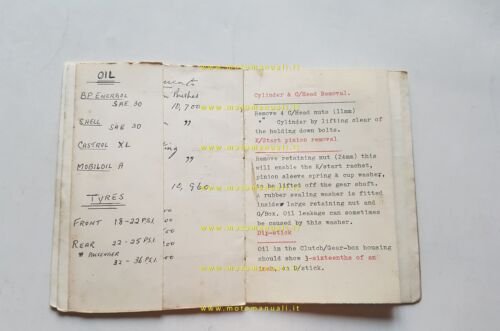 www.motomanuali.it
OIL
BP ENERGOL
SAE 30
SHELL
SAE 30
CASTROL XL
MOBILOIL A
TYRES
FRONT 18-22 P.S.I.
REAR 22-25 P.S.I.
" PASSENGER
32-36 P.S.I.
Bushes
10,700
"
"
10,960
Cylinder & C/Head Removal.
Remove 4 C/Head nuts (11mm)
" Cylinder by lifting clear of
the holding down bolts.
K/Start pinion removal
Remove retaining nut (24mm) this
will enable the K/start rachet,
pinion sleeve spring & cup washer,
to be lifted off the gear shaft.
A rubber sealing washer is fitted
inside large retaining nut and
G/Box. Oil leakage can sometimes
be caused by this washer.
Dip-stick
Oil in the Clutch/Gear-box housing
should show 3-sixteenths of an
inch, on D/stick.
www.motomanuali.it